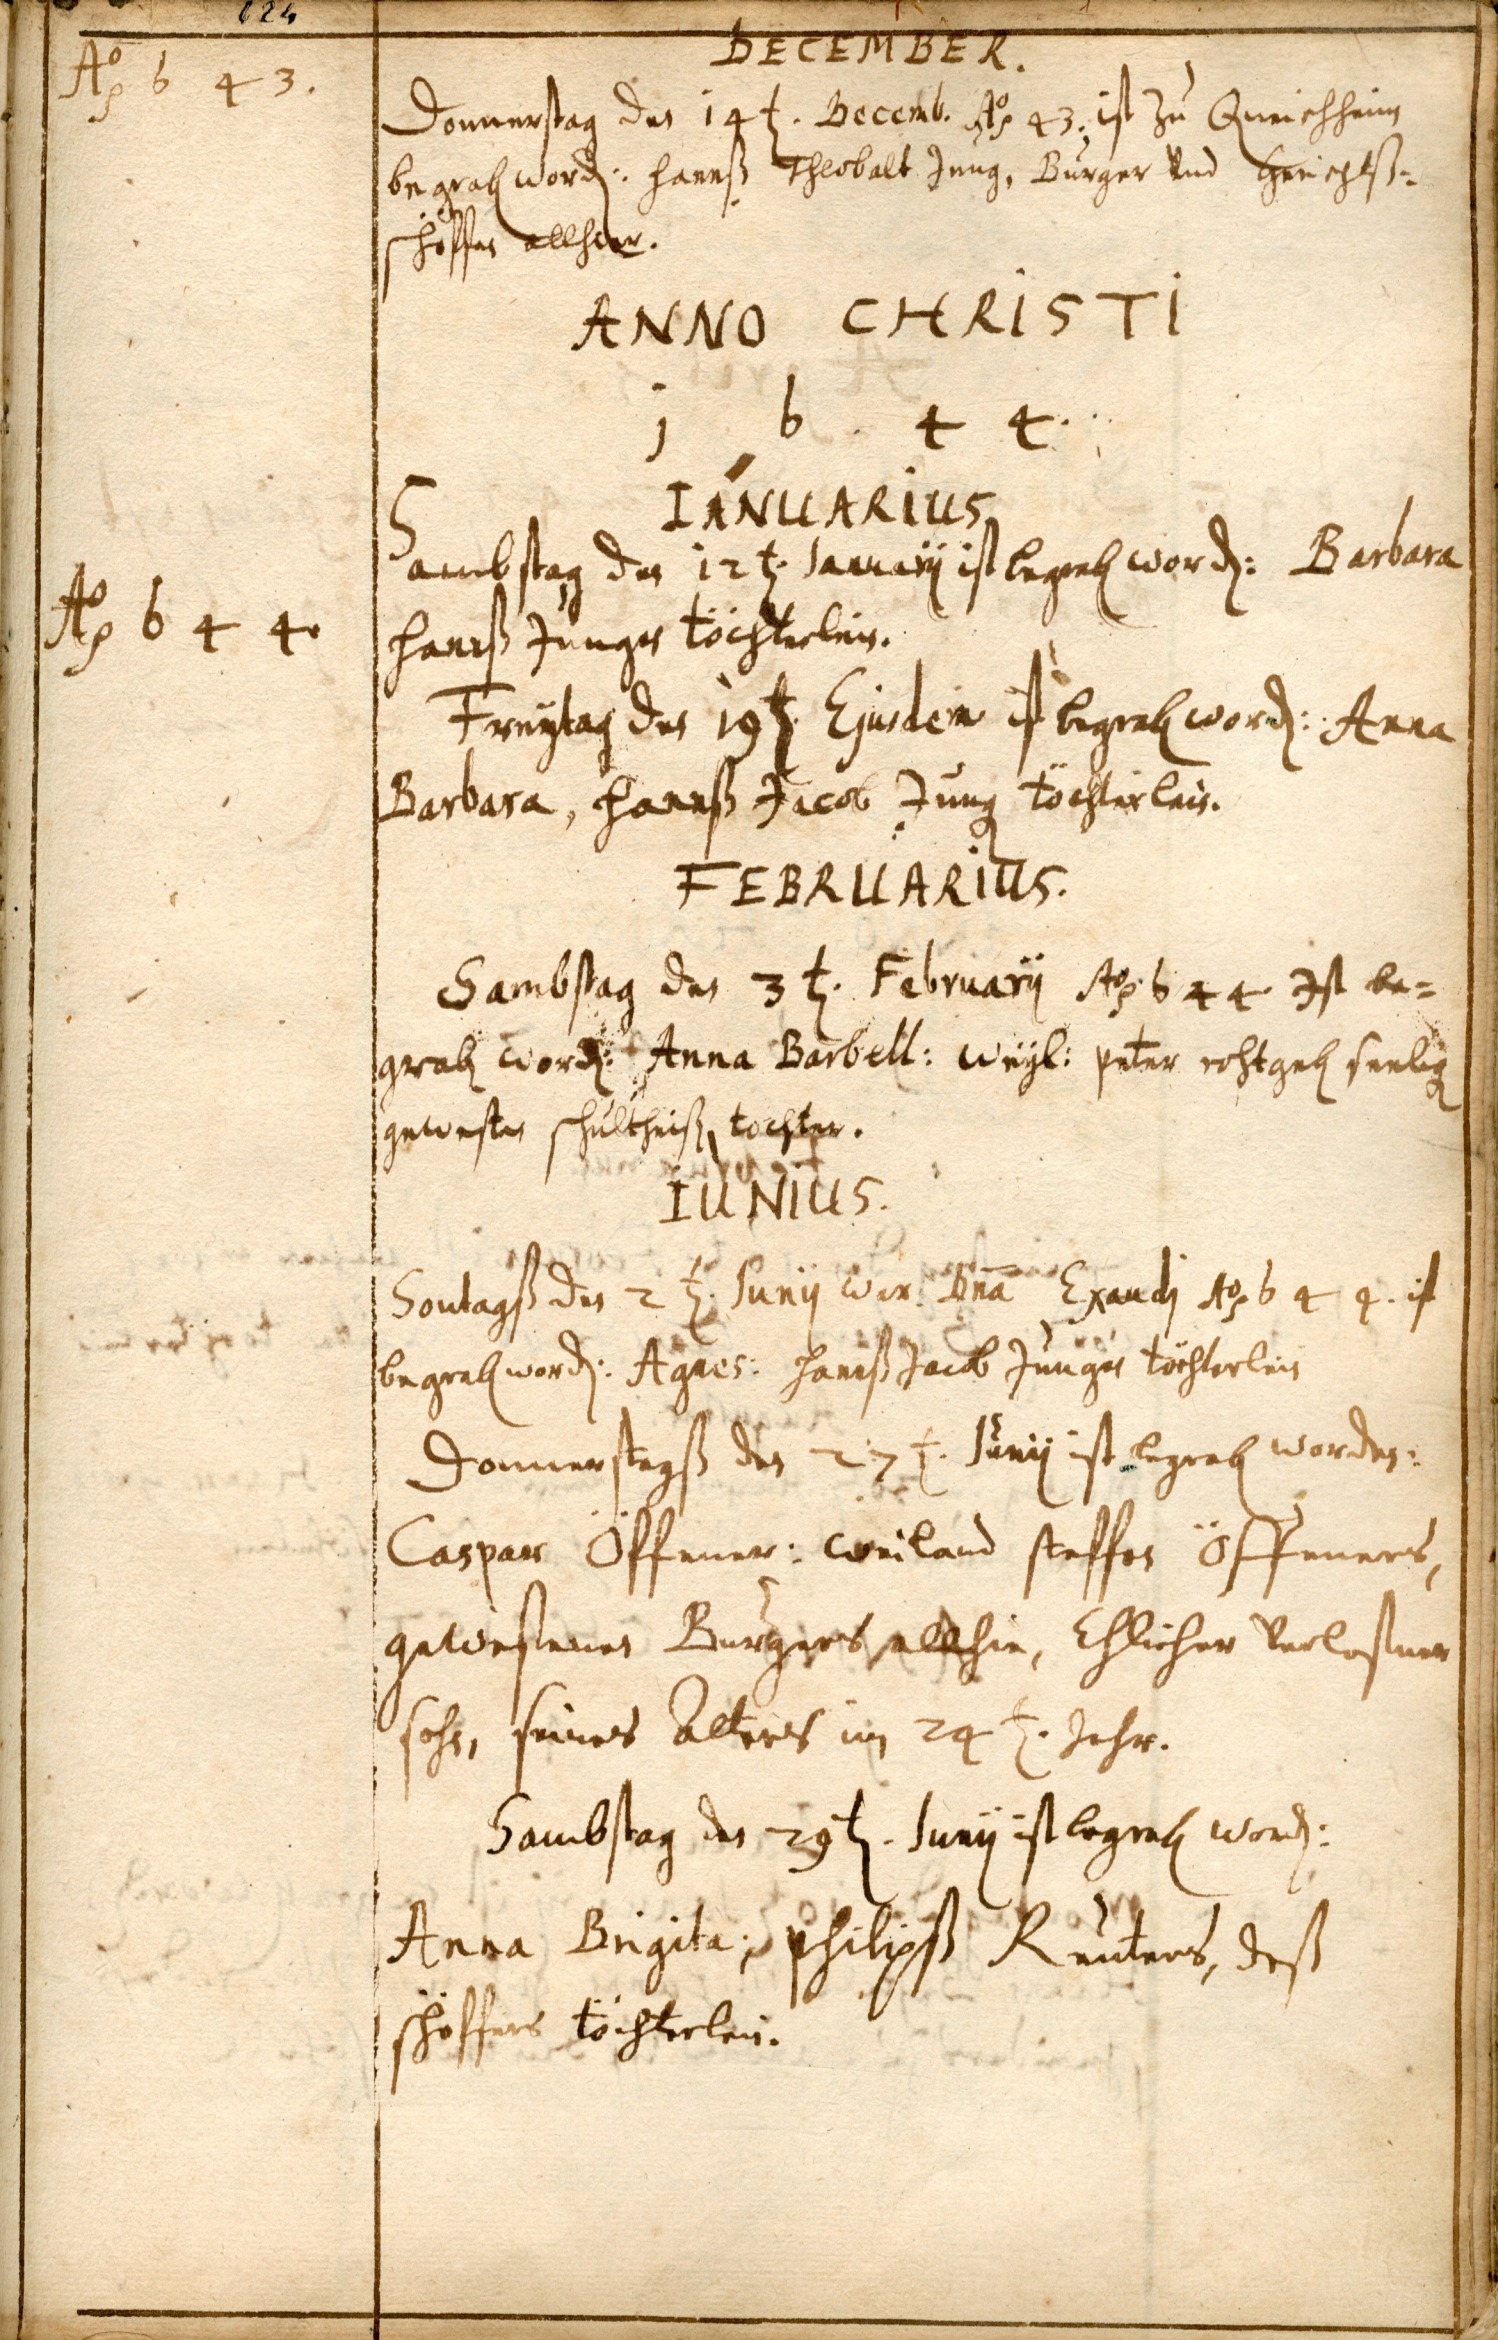 624
DECEMBER.
Ao 643.
Donnerstag den 14t. Decemb. Ao 43. ist zu Queichheim
begrab word: hannß Theobalt Jung, Burger Vnd Gerichtß=
schöffen allhier.
ANNO CHRISTI
1644.
IANUARIUS
Sambstag den 12t. Januarij ist begrab word: Barbara
Ao 644.
hannß Jungen töchterlein.
Freytag den 19t. Ejusdem ist begrab word: Anna
Barbara, hannß Jacob Jung töchterlein.
FEBRUARIUS.
Sambstag den 3t. Februarij Ao 644 Ist be=
grab word: Anna Barbell: weyl: peter rohtgeb seelig
gewesten schultheiß tochter.
IUNIUS.
Sontagß den 2t. Junij war Dna Exaudj Ao 644. ist
begrab word: Agnes: hannß Jacob Jungen töchterlein
Donnerstagß den 27t. Junij ist begrab worden:
Caspar Öffener: weiland steffen Öffeners,
gewesenen Burgers allhie, Ehlicher Verlaßner
sohn, seines Alters im 24t. Jahr.
Sambstag den 29t. Junij ist begrab word:
Anna Brigita; philipß Reuters, deß
schöffens töchterlein.